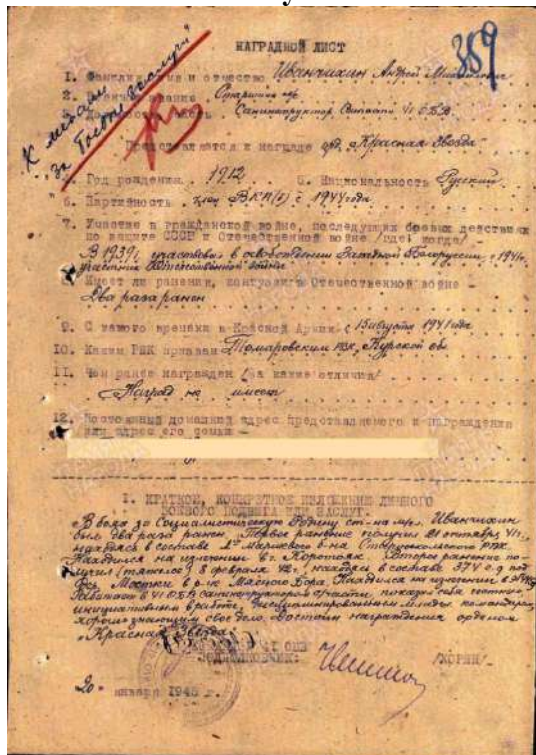 389
НАГРАДНОЙ ЛИСТ
К медали
"За боевые заслуги"
1. Фамилия, имя и отчество Иванчихин Андрей
2. Старшина м/с
3. Санинструктор 41 ОБВ
Представляется к награде орд. "Красная Звезда"
4. Год рождения 1912 5. Национальность Русский
6. Партийность член ВКП(б) с 1944 года
7. Участие в гражданской войне, последующих боевых действиях
по защите СССР и Отечественной войне /где, когда/
В 1939 г. участвовал в освобождении Западной Белоруссии, с 1941 г.
участник Отечественной войны
Имеет ли ранения, контузии в Отечественной войне -
Два раза ранен
9. С какого времени в Красной Армии с 15 августа 1941 года
10. Каким РВК призван Томаровским РВК, Курской обл
11. Чем ранее награжден /за какие отличия/
Наград не имеет
12. Постоянный домашний адрес представляемого к награждению
или адрес его семьи -
I. КРАТКОЕ, КОНКРЕТНОЕ ИЗЛОЖЕНИЕ ЛИЧНОГО
БОЕВОГО ПОДВИГА ИЛИ ЗАСЛУГ.
В боях за социалистическую Родину ст-на м/с. Иванчихин
был два раза ранен. Первое ранение получил 21 октября 41 г.,
находясь в составе 1го маршевого б-на Старооскольского РВК.
Находился на излечении в г. Коротояк. Второе ранение по-
лучил /тяжелое/ 8 февраля 42 г. находясь в составе 374 с.д. под
дер. Мостки в р-не Мясного Бора. Находился на излечении в
Работая в 41 ОБВ санинструктором части показал себя честным,
инициативным в работе, дисциплинированным младш. командиром,
хорошо знающим свое дело. Достоин награждения орденом
"Красная Звезда"
ПОДПОЛКОВНИК: /ХОРИН/
"20" января 1945 г.